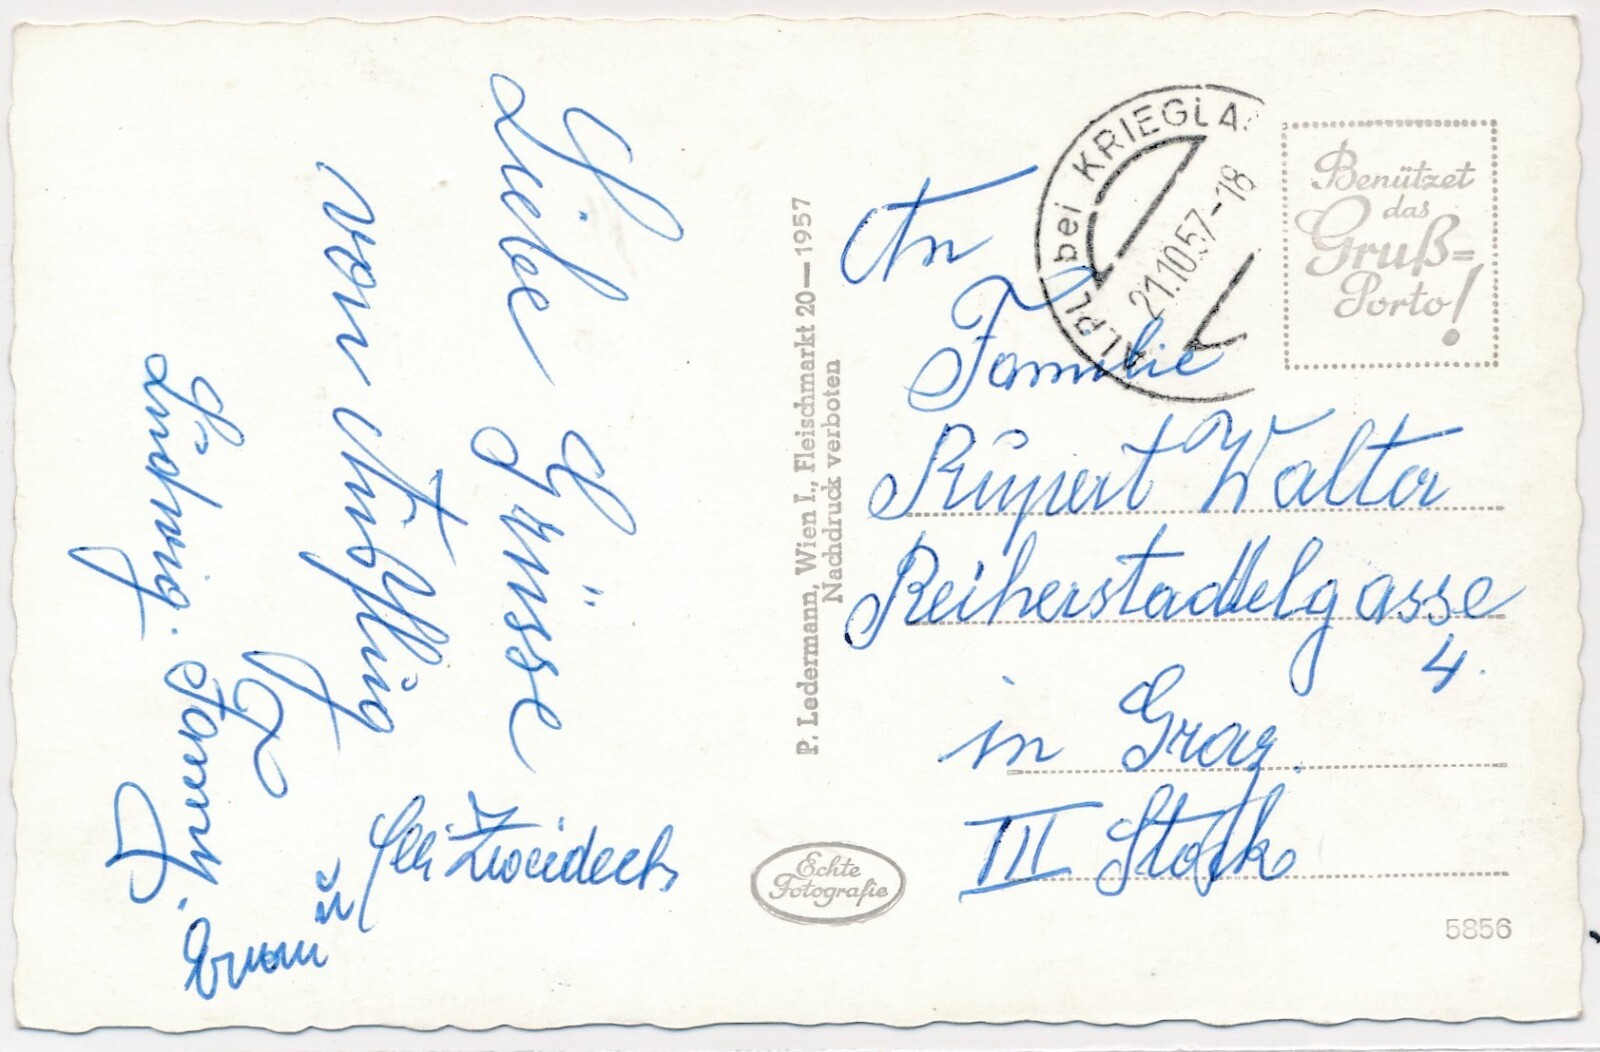 Liebe Grüsse
von Ausflug
Ludwig. Fanny.
Zweideck
Erwin
P. Ledermann, Wien I., Fleischmarkt 20—1957
Nachdruck verboten
Echte
Fotografie
ALPL bei KRIEGLA
21.10.57-18
Benützet
das
Gruß=
Porto!
An
Familie
Rupert Walter
Reiherstadtelgasse
4.
in Graz.
III Stock
5856